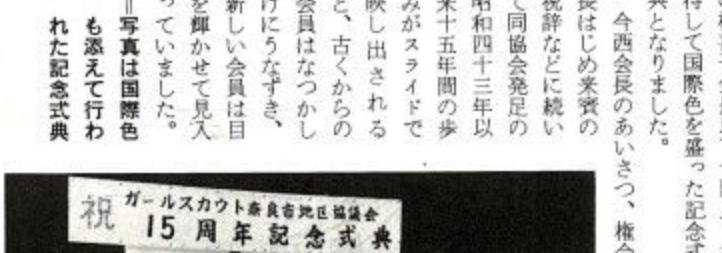 待して国際色を盛った記念式
典となりました。
今西会長のあいさつ、権会
長はじめ来賓の
祝辞などに続い
て同協会発足の
昭和四十三年以
来十五年間の歩
みがスライドで
映し出される
と、古くからの
会員はなつかし
げにうなずき、
新しい会員は目
を輝かせて見入
っていました。
＝写真は国際色
も添えて行わ
れた記念式典
祝 ガールスカウト奈良市地区協議会
15周年記念式典